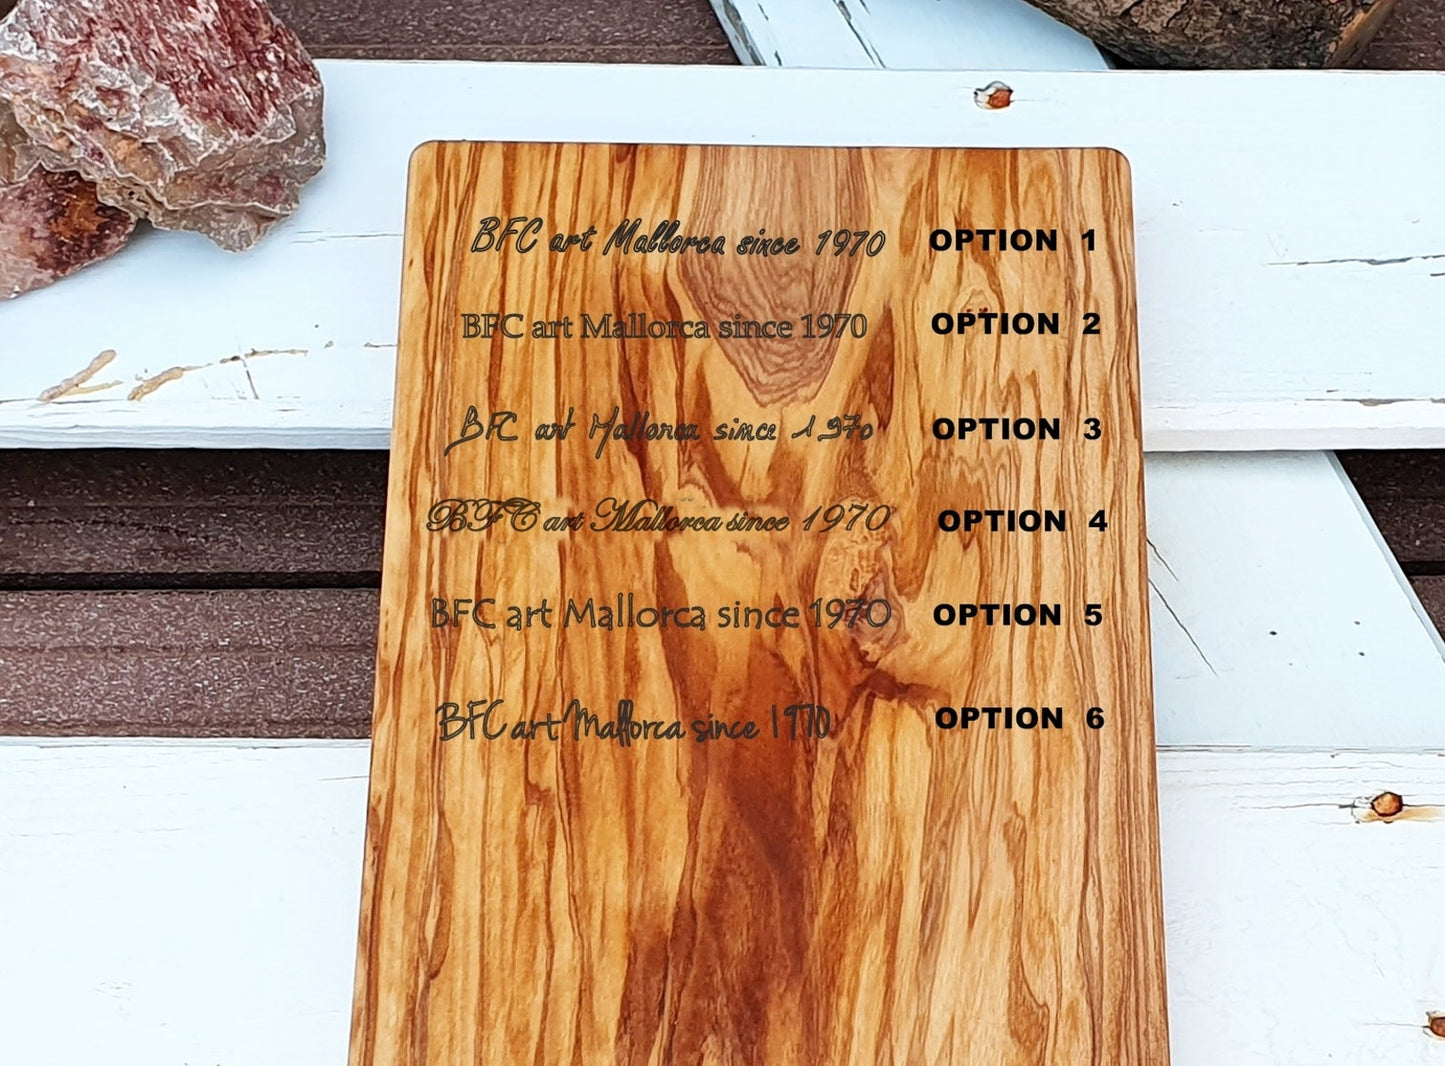 BFC art Mallorca since 1970 OPTION 1
BFC art Mallorca since 1970 OPTION 2
BFC art Mallorca since 1970 OPTION 3
BFC art Mallorca since 1970 OPTION 4
BFC art Mallorca since 1970 OPTION 5
BFC art Mallorca since 1970 OPTION 6